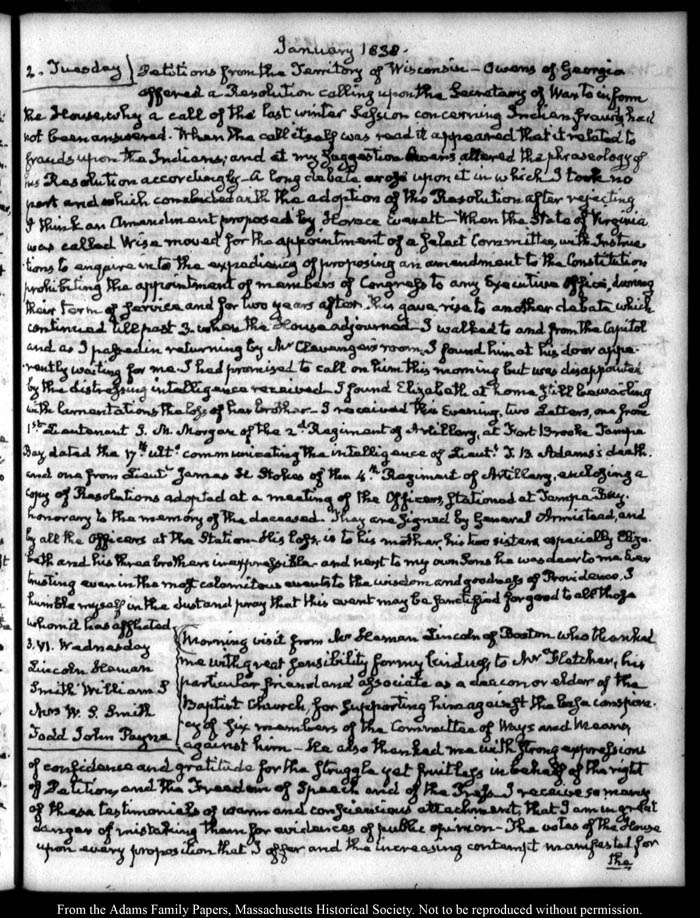 January 1838.
2. Tuesday) Petitions from the Territory of Wisconsin - Owens of Georgia
offered a Resolution calling upon the Secretary of War to inform
the House, why a call of the last winter Session concerning Indian frauds had
not been answered. When the call itself was read it appeared that it related to
frauds upon the Indians; and at my suggestion Owens altered the phraseology of
his Resolution accordingly - A long debate arose upon it in which I took no
part and which concluded with the adoption of the Resolution after rejecting
I think an Amendment proposed by Horace Everett - When the State of Virginia
was called Wise moved for the appointment of a Select Committee, with Instruc-
tions to enquire into the expediency of proposing an amendment to the Constitution
prohibiting the appointment of members of Congress to any Executive office, during
their term of service and for two years after. This gave rise to another debate which
continued till past 3. when the House adjourned - I walked to and from the Capitol
and as I passed in returning by Mr Clevenger's room, I found him at his door appa-
rently waiting for me. I had promised to call on him this morning but was disappointed
by the distressing intelligence received - I found Elizabeth at home still bewailing
with lamentations the loss of her brother - I received this Evening, two Letters, one from
1st Lieutenant S. M. Morgan of the 2d Regiment of Artillery, at Fort Brooke Tampa
Bay dated the 17th ulto communicating the intelligence of Lieut. T. B Adams's death.
and one from Lieut James H Stokes of the 4th Regiment of Artillery, enclosing a
copy of Resolutions adopted at a meeting of the Officers, stationed at Tampa Bay.
honorary to the memory of the deceased - They are signed by General Armistead, and
by all the Officers at the Station - His loss, is to his mother, his two sisters especially Eliza-
beth and his three brothers inexpressible - and next to my own Sons he was dear to me. Ever
trusting even in the most calamitous events to the wisdom and goodness of Providence, I
humble myself in the dust and pray that this event may be sanctified for good to all those
whom it has afflicted.
3. VI. Wednesday
Lincoln Heman
Smith William S
Mrs W. S. Smith
Todd John Payne
Morning visit from Mr Heman Lincoln of Boston who thanked
me with great sensibility for my kindness to Mr Fletcher, his
particular friend and associate as a deacon or elder of the
Baptist Church, for supporting him against the base conspira-
cy of six members of the Committee of Ways and Means,
against him - He also thanked me with strong expressions
of confidence and gratitude for the struggle yet fruitless in behalf of the right
of Petition, and the Freedom of Speech and of the Press. I receive so many
of these testimonials of warm and conscientious attachment, that I am in great
danger of mistaking them for evidences of public opinion - The votes of the House
upon every proposition that I offer and the increasing contempt manifested for
the
From the Adams Family Papers, Massachusetts Historical Society. Not to be reproduced without permission.